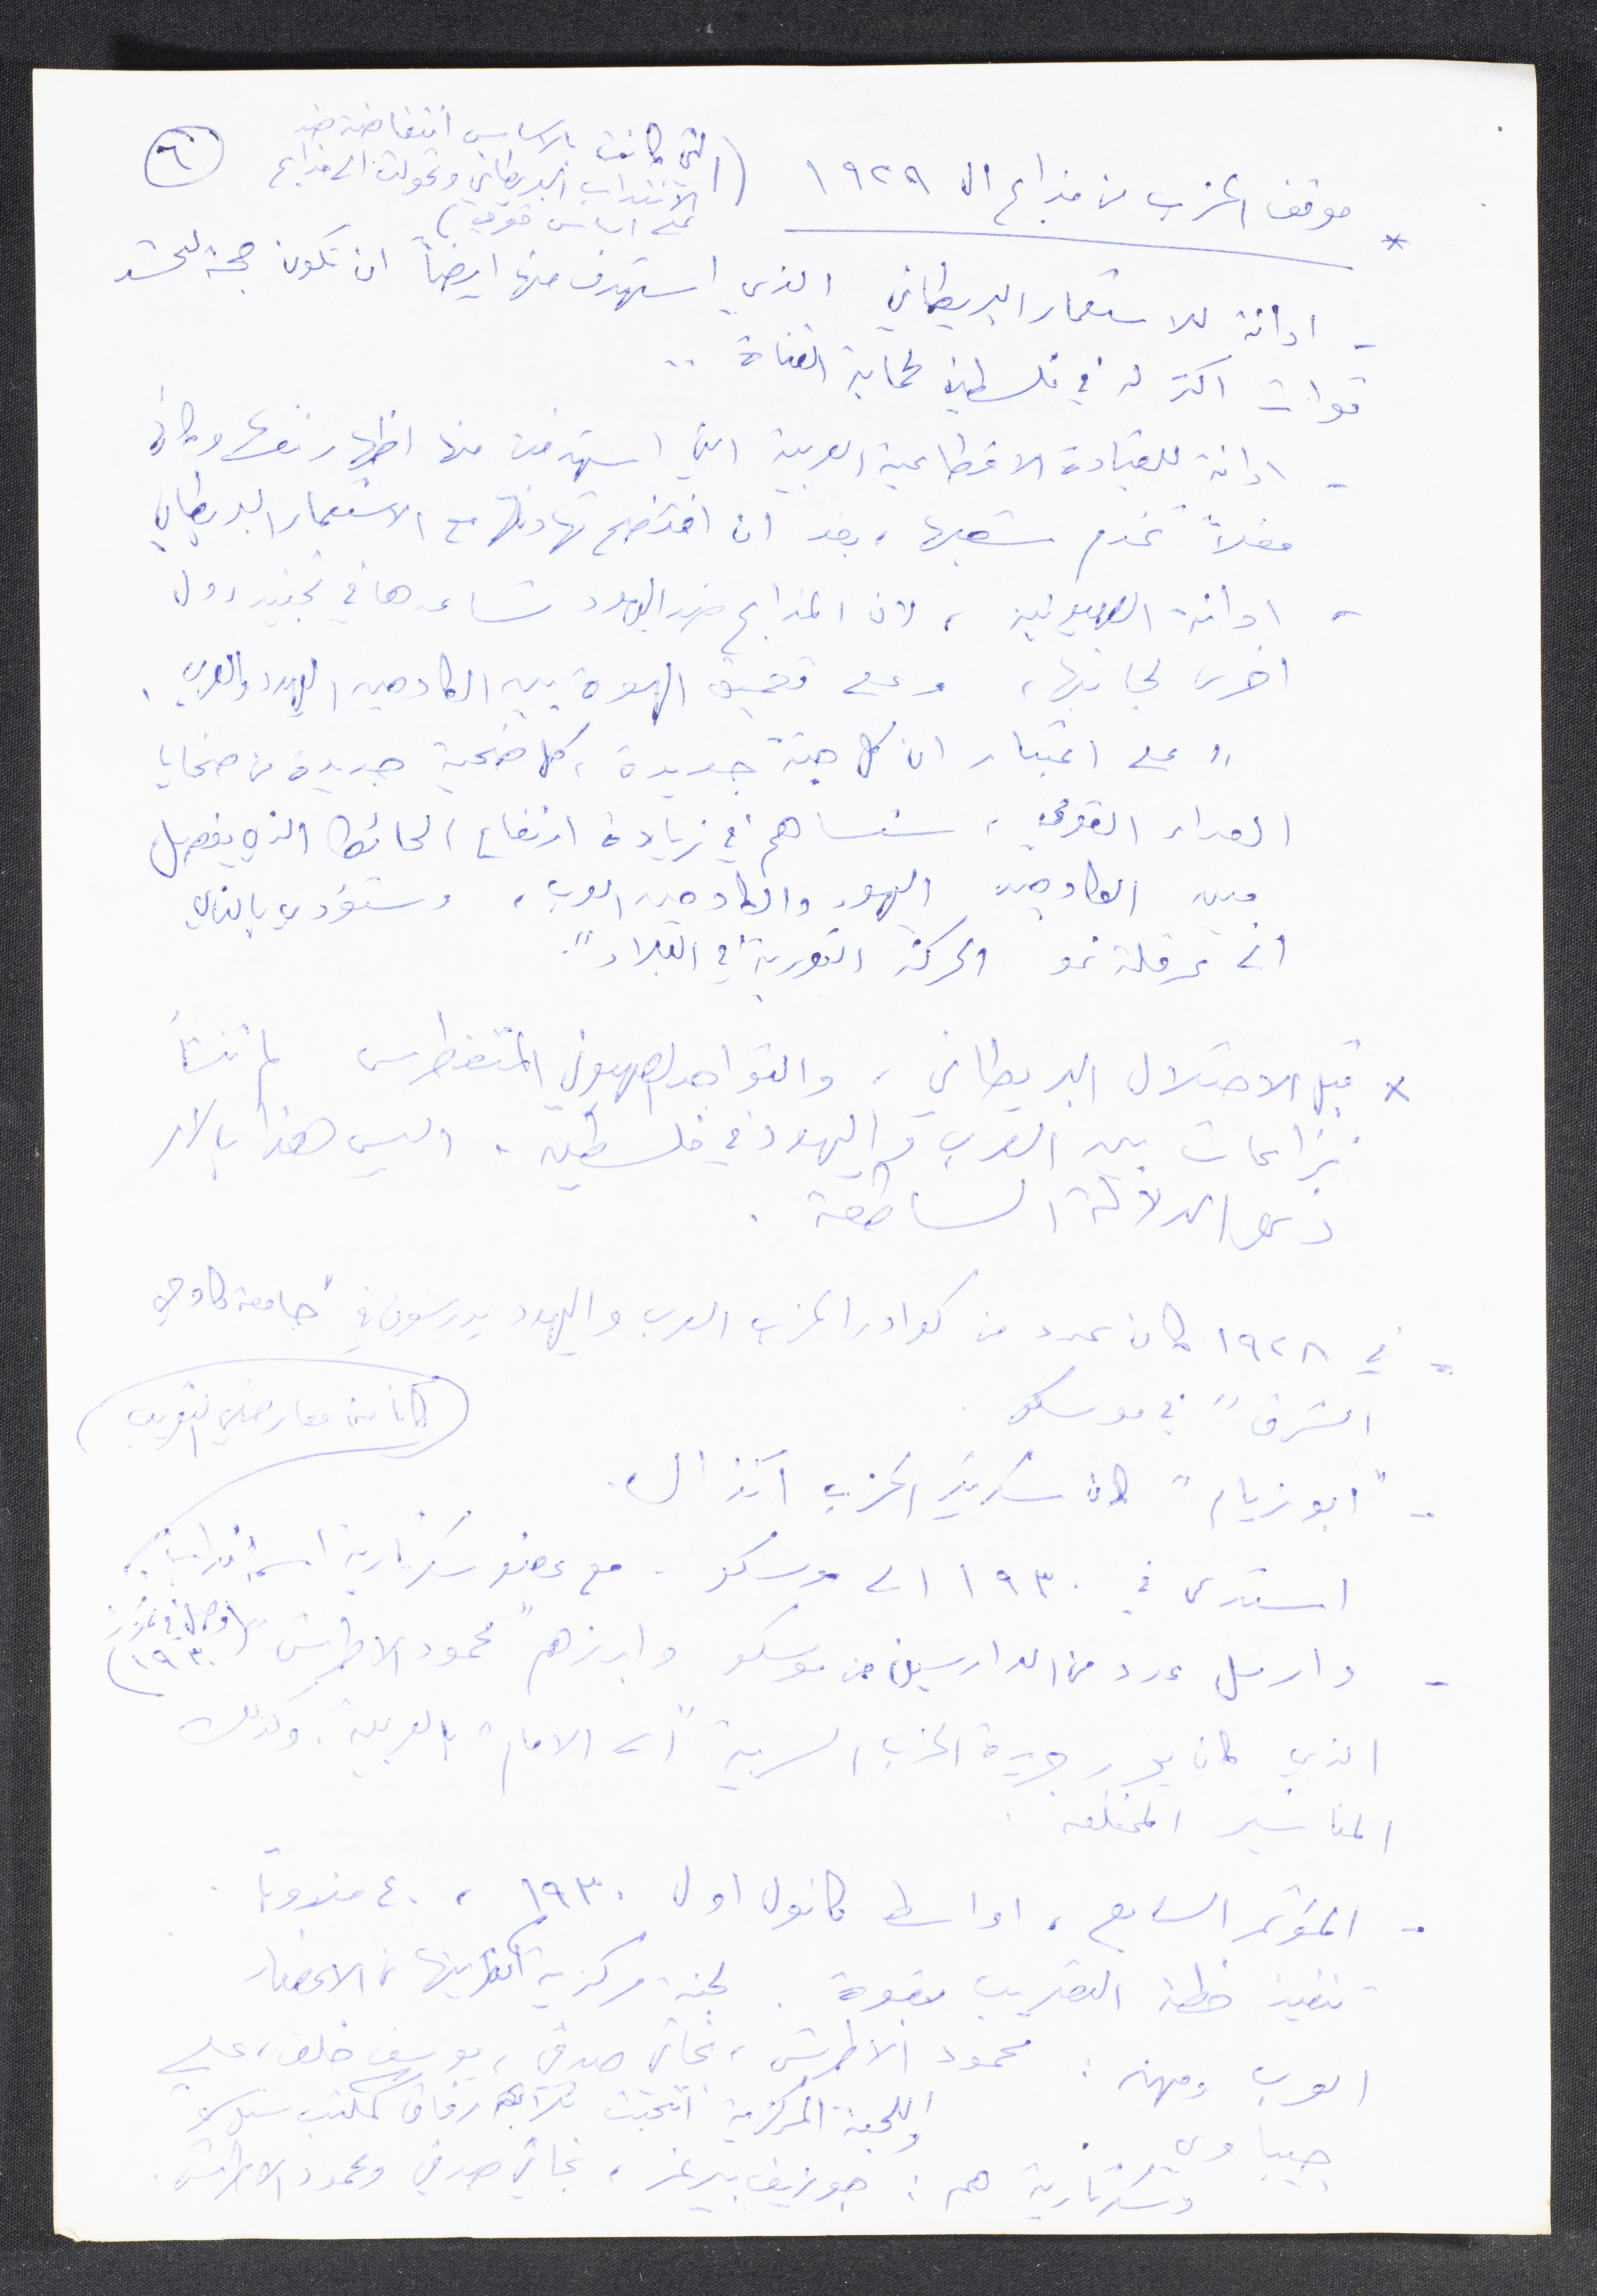 ٦
* موقف الحزب من مذابح الـ ١٩٢٩
(التي كانت بالاساس انتفاضة ضد
الانتداب البريطاني وتحولت الى مذابح
على اساس قومي)
- ادانة للاستعمار البريطاني الذي استهدف منها ايضاً ان تكون حجة لحشد
قوات اكثر له في فلسطين لحماية القناة ..
- ادانة للقيادة الاقطاعية العربية التي استهدفت منها اظهار نفسها وكأنها
فعلاً تخدم شعبها، بعد ان افتضح تهادنها مع الاستعمار البريطاني
- ادانة الصهيونية، لان المذابح ضد اليهود تساعدها في تجنيد دول
اخرى لجانبها، وعلى تعميق الهوة بين الكادحين اليهود والعرب.
"على اعتبار ان كل جثة جديدة، كل ضحية جديدة من ضحايا
العداء القومي، ستساهم في زيادة ارتفاع الحائط الذي يفصل
بين الكادحين اليهود والكادحين العرب، وستؤدي بالتالي
الى عرقلة نمو الحركة الثورية في البلاد".
* قبل الاحتلال البريطاني، والتواجد الصهيوني المتغطرس لم تنشأ
نزاعات بين العرب واليهود في فلسطين. اليس هذا بالامر
ذي الدلالة الساطعة.
- في ١٩٢٨ كان عدد من كوادر الحزب العرب واليهود يدرسون في "جامعة كادحي
الشرق" في موسكو.
كانا من معارضي التعريب
- "ابو زيام" كان سكرتير الحزب آنذاك.
استدعي في ١٩٣٠ الى موسكو. مع عضو سكرتارية اسمه
- وارسل عدد من الدارسين من موسكو وابرزهم "محمود الاطرش" (وصل في تموز
١٩٣٠)
الذي كان يحرر جريدة الحزب السرية "الى الامام" بالعربية. وكذلك
المناشير المختلفة.
- المؤتمر السابع، اواسط كانون اول ١٩٣٠، ٤٠ مندوباً.
تنفيذ خطة التعريب بقوة. لجنة مركزية اكثريتها من الاعضاء
العرب ومنهم: محمود الاطرش، نجاتي صدقي، يوسف خلف، علي
جيباوي. واللجنة المركزية انتخبت ثلاثة رفاق كمكتب سياسي
وسكرتارية هم: جوزيف بيرغر، نجاتي صدقي ومحمود الاطرش.